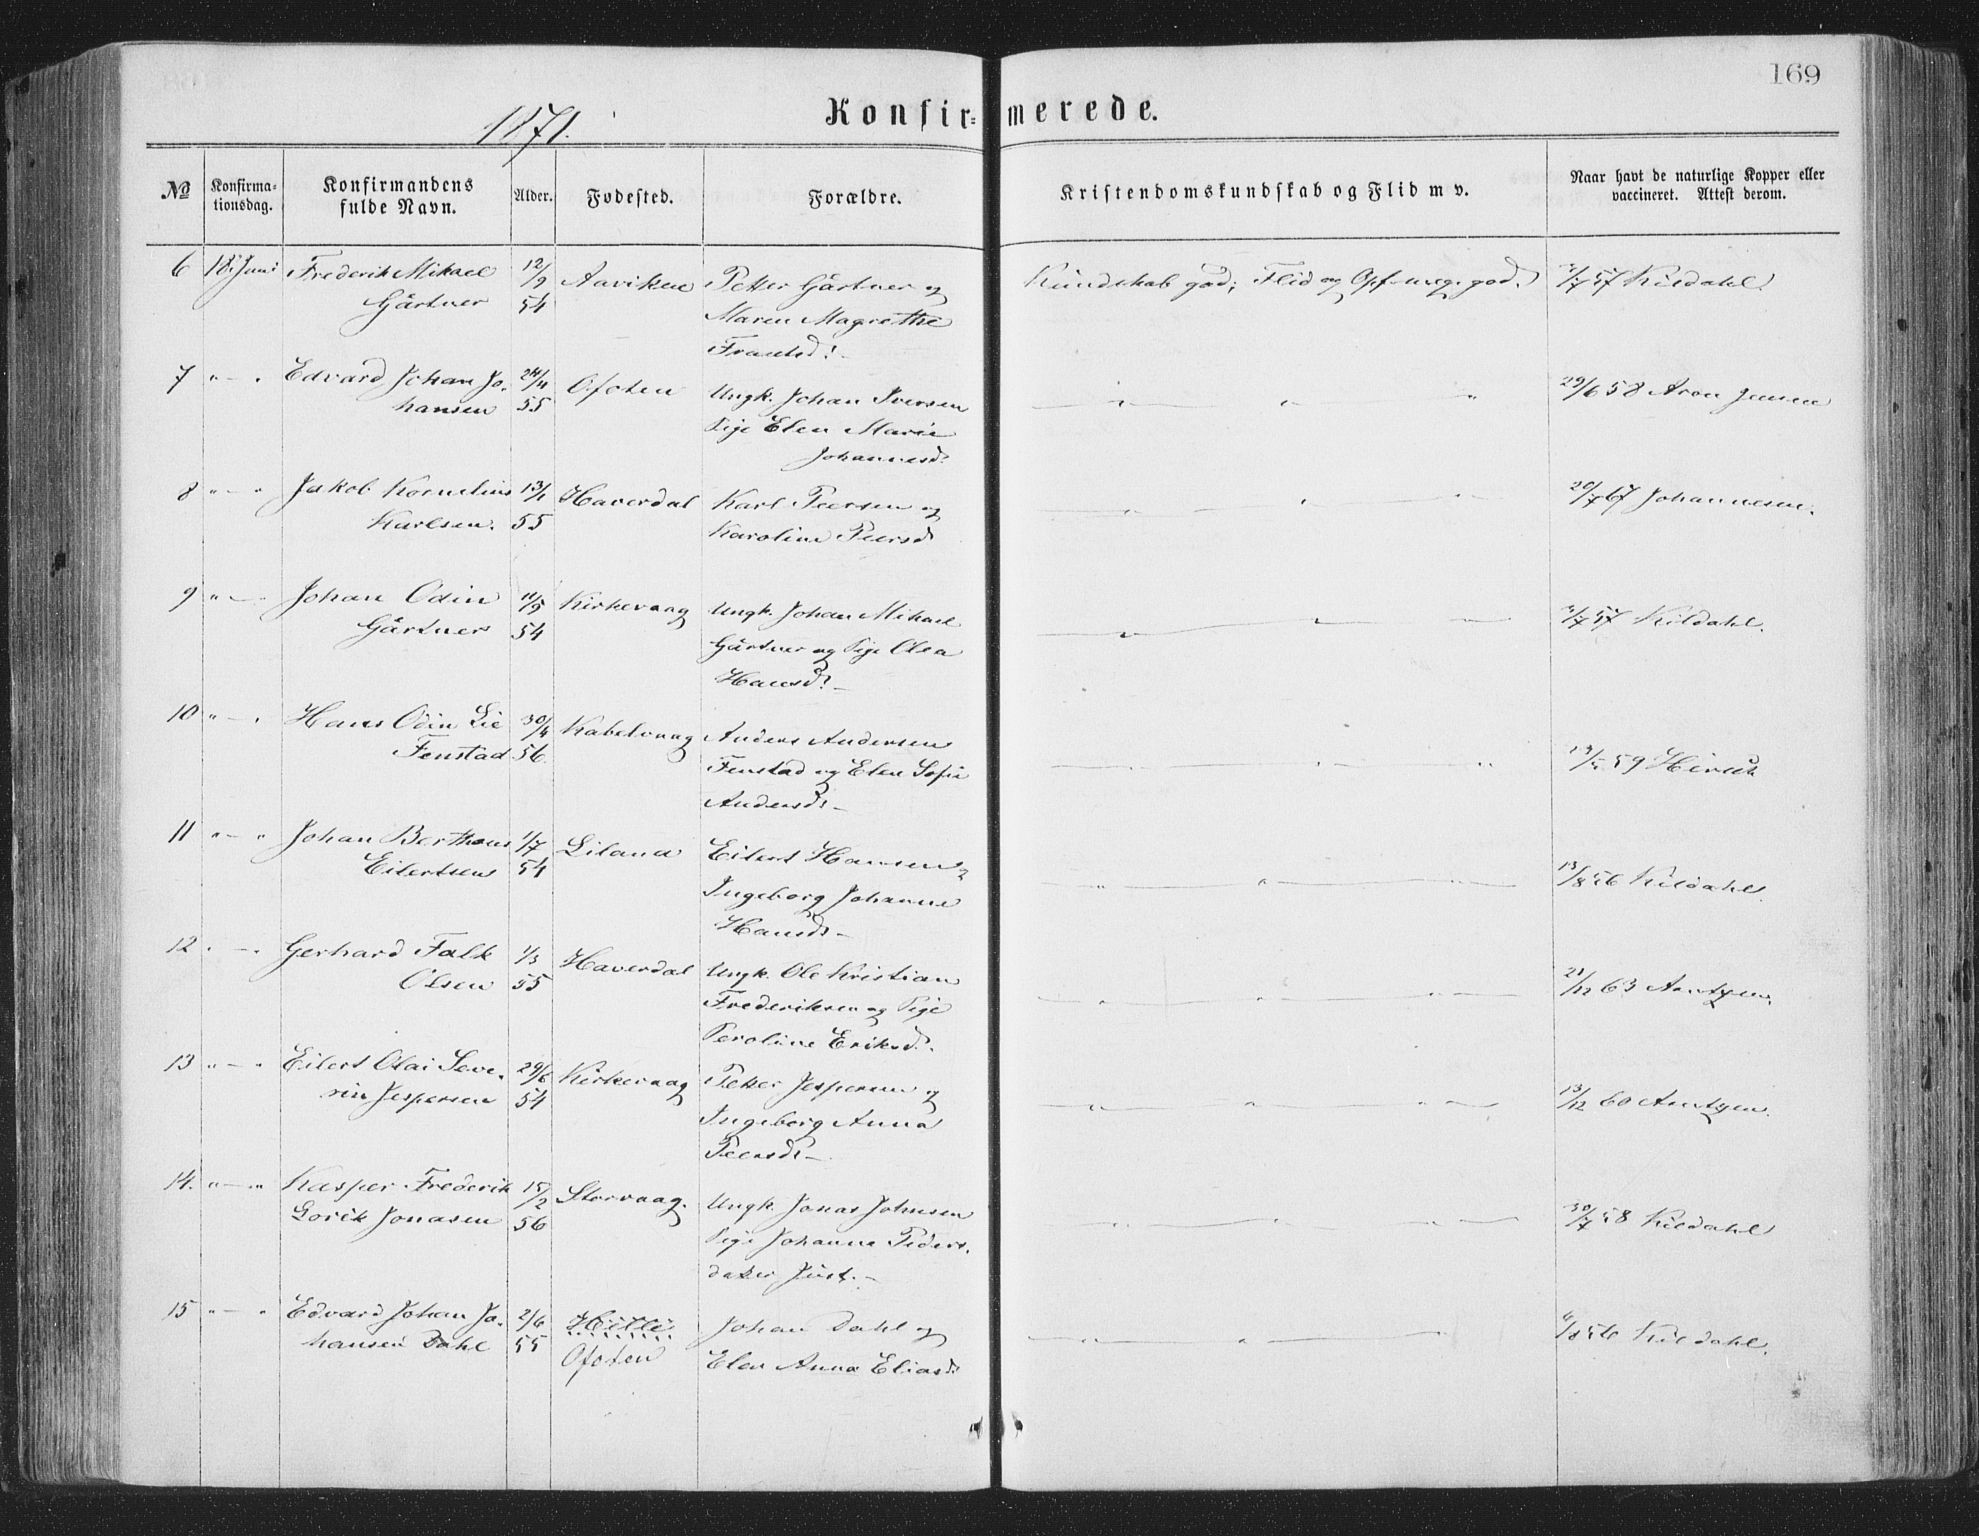 169
1871.
Konfir=merede.
No
Konfirma=
tionsdag.
Konfirmandens
fulde Navn.
Alder.
Fødested.
Forældre.
Kristendomskundskab og Flid m v.
Naar havt de naturlige Kopper eller
vaccineret. Attest derom.
6 18. Juni Frederik Mikael 12/9 Aaviken Petter Gärtner og Kundskab god; Flid og Opf. meg. god. 3/7 57 Kildahl.
Gärtner 54 Maren Magrethe
Frantsd:
7 " — " Edvard Johan Jo- 24/4 Ofoten Ungk. Johan Iversen 29/6 58 Aron Jensen
hansen 55 Pige Elen Marie
Johannesd:
8 " — " Jakob Kornelius 13/1 Haverdal Karl Peersen og 20/7 67 Johannesen.
Karlsen. 55 Karoline Peersd
9 " — " Johan Odin Kirkevaag Ungk. Johan Mikael 3/7 57 Kildahl.
Gärtner 54 Gärtner og Pige Olea
Hansd: —
10 " — " Hans Odin Lie 30/4 Kabelvaag Anders Andersen 59 Hirsch
Fenstad 56 Fenstad og Elen Sofie
Andersd: —
11 " — " Johan Bertheus 1/7 Liland Eilert Hansen 13/8 56 Kildahl.
Eilertsen 54 Ingeborg Johanna
Hansd: —
12 " — " Gerhard Falk 1/3 Haverdal Ungk. Ole Kristian 21/12 63 Arntzen.
Olsen 55 Frederiksen og Pige
Peroline Eriksd:
13 " — " Eilert Olai Seve- 29/6 Kirkevaag Petter Jespersen og 13/12 60 Arntzen.
rin Jespersen 54 Ingeborg Anna
Peersd: —
14. " — " Kasper Frederik 15/2 Storvaag. Ungk. Jonas Johnsen 30/7 58 Kildahl
Lorik Jonasen 56 Pige Johanna Peders-
datter Just. —
15 " — " Edvard Johan Jo- 2/6 Johan Dahl og 56 Kildahl.
hansen Dahl 55 Ofoten Elen Anna Eliasd: